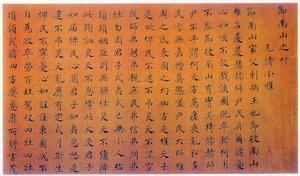 節南山之什
毛詩小雅
節南山家父刺幽王也節彼南山
維石巖巖赫赫師尹民具爾瞻憂
心如惔不敢戲談國既卒斬何用
不監節彼南山有實其猗赫赫師
尹不平謂何天方薦瘥喪亂弘多
民言無嘉憯莫懲嗟尹氏大師維
周之氐秉國之均四方是維天子
是毗俾民不迷不弔昊天不宜空
我師弗躬弗親庶民弗信弗問弗
仕勿罔君子式夷式已無小人殆
瑣瑣姻亞則無膴仕昊天不傭降
此鞠訩昊天不惠降此大戾君子
如屆俾民心闋君子如夷惡怒是
違不弔昊天亂靡有定式月斯生
俾民不寧憂心如酲誰秉國成不
自為政卒勞百姓駕彼四牡四牡
項領我瞻四方蹙蹙靡所騁方茂